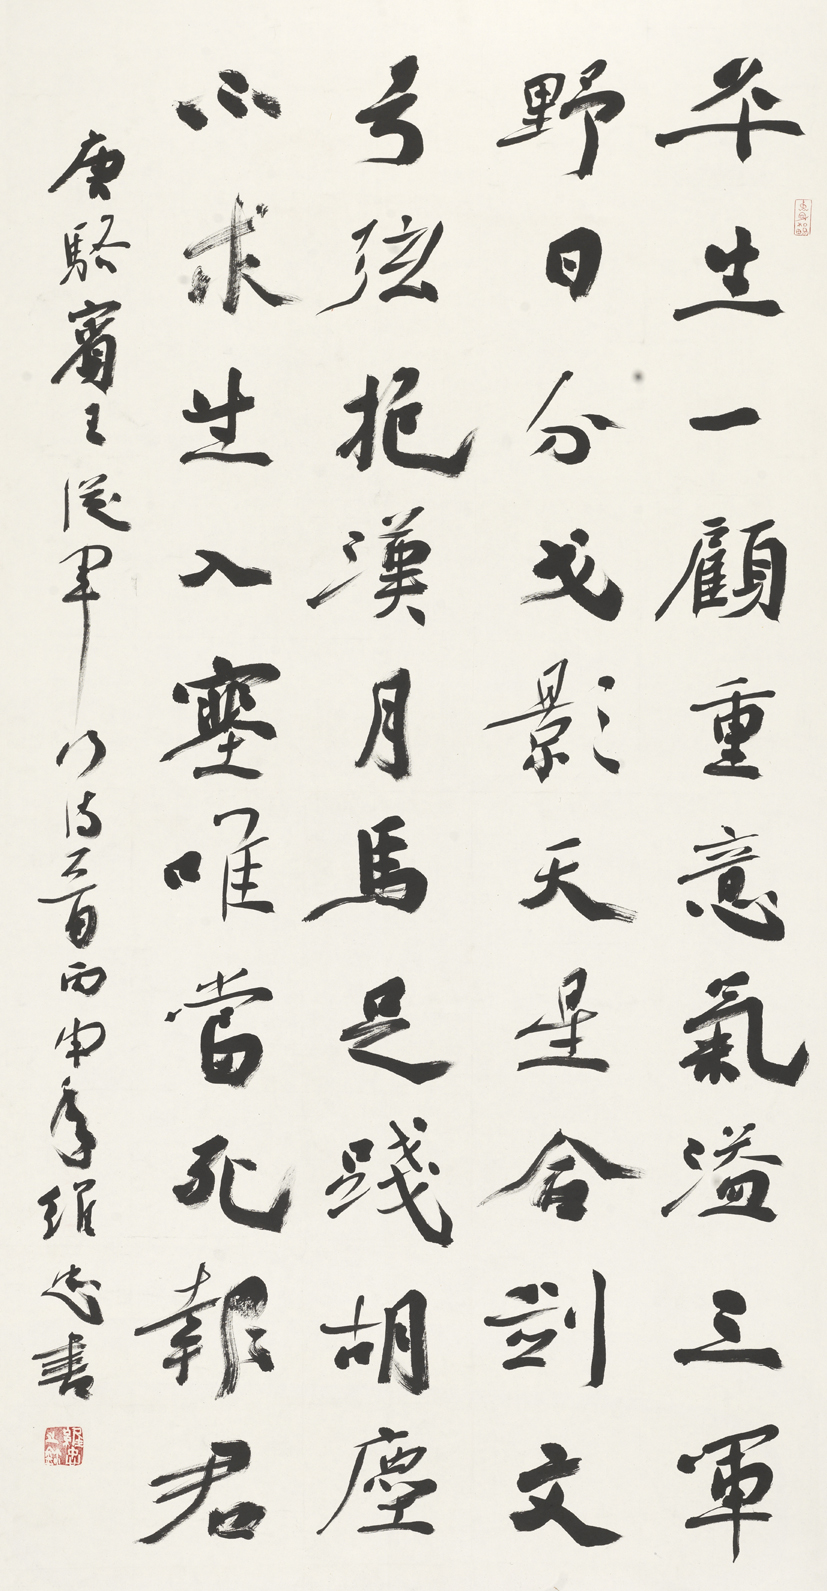 平生一顧重意氣溢三軍
野日分戈影天星合劍文
弓弦抱漢月馬足踐胡塵
不求生入塞唯當死報君
唐駱賓王從軍行詩一首丙申年維忠書